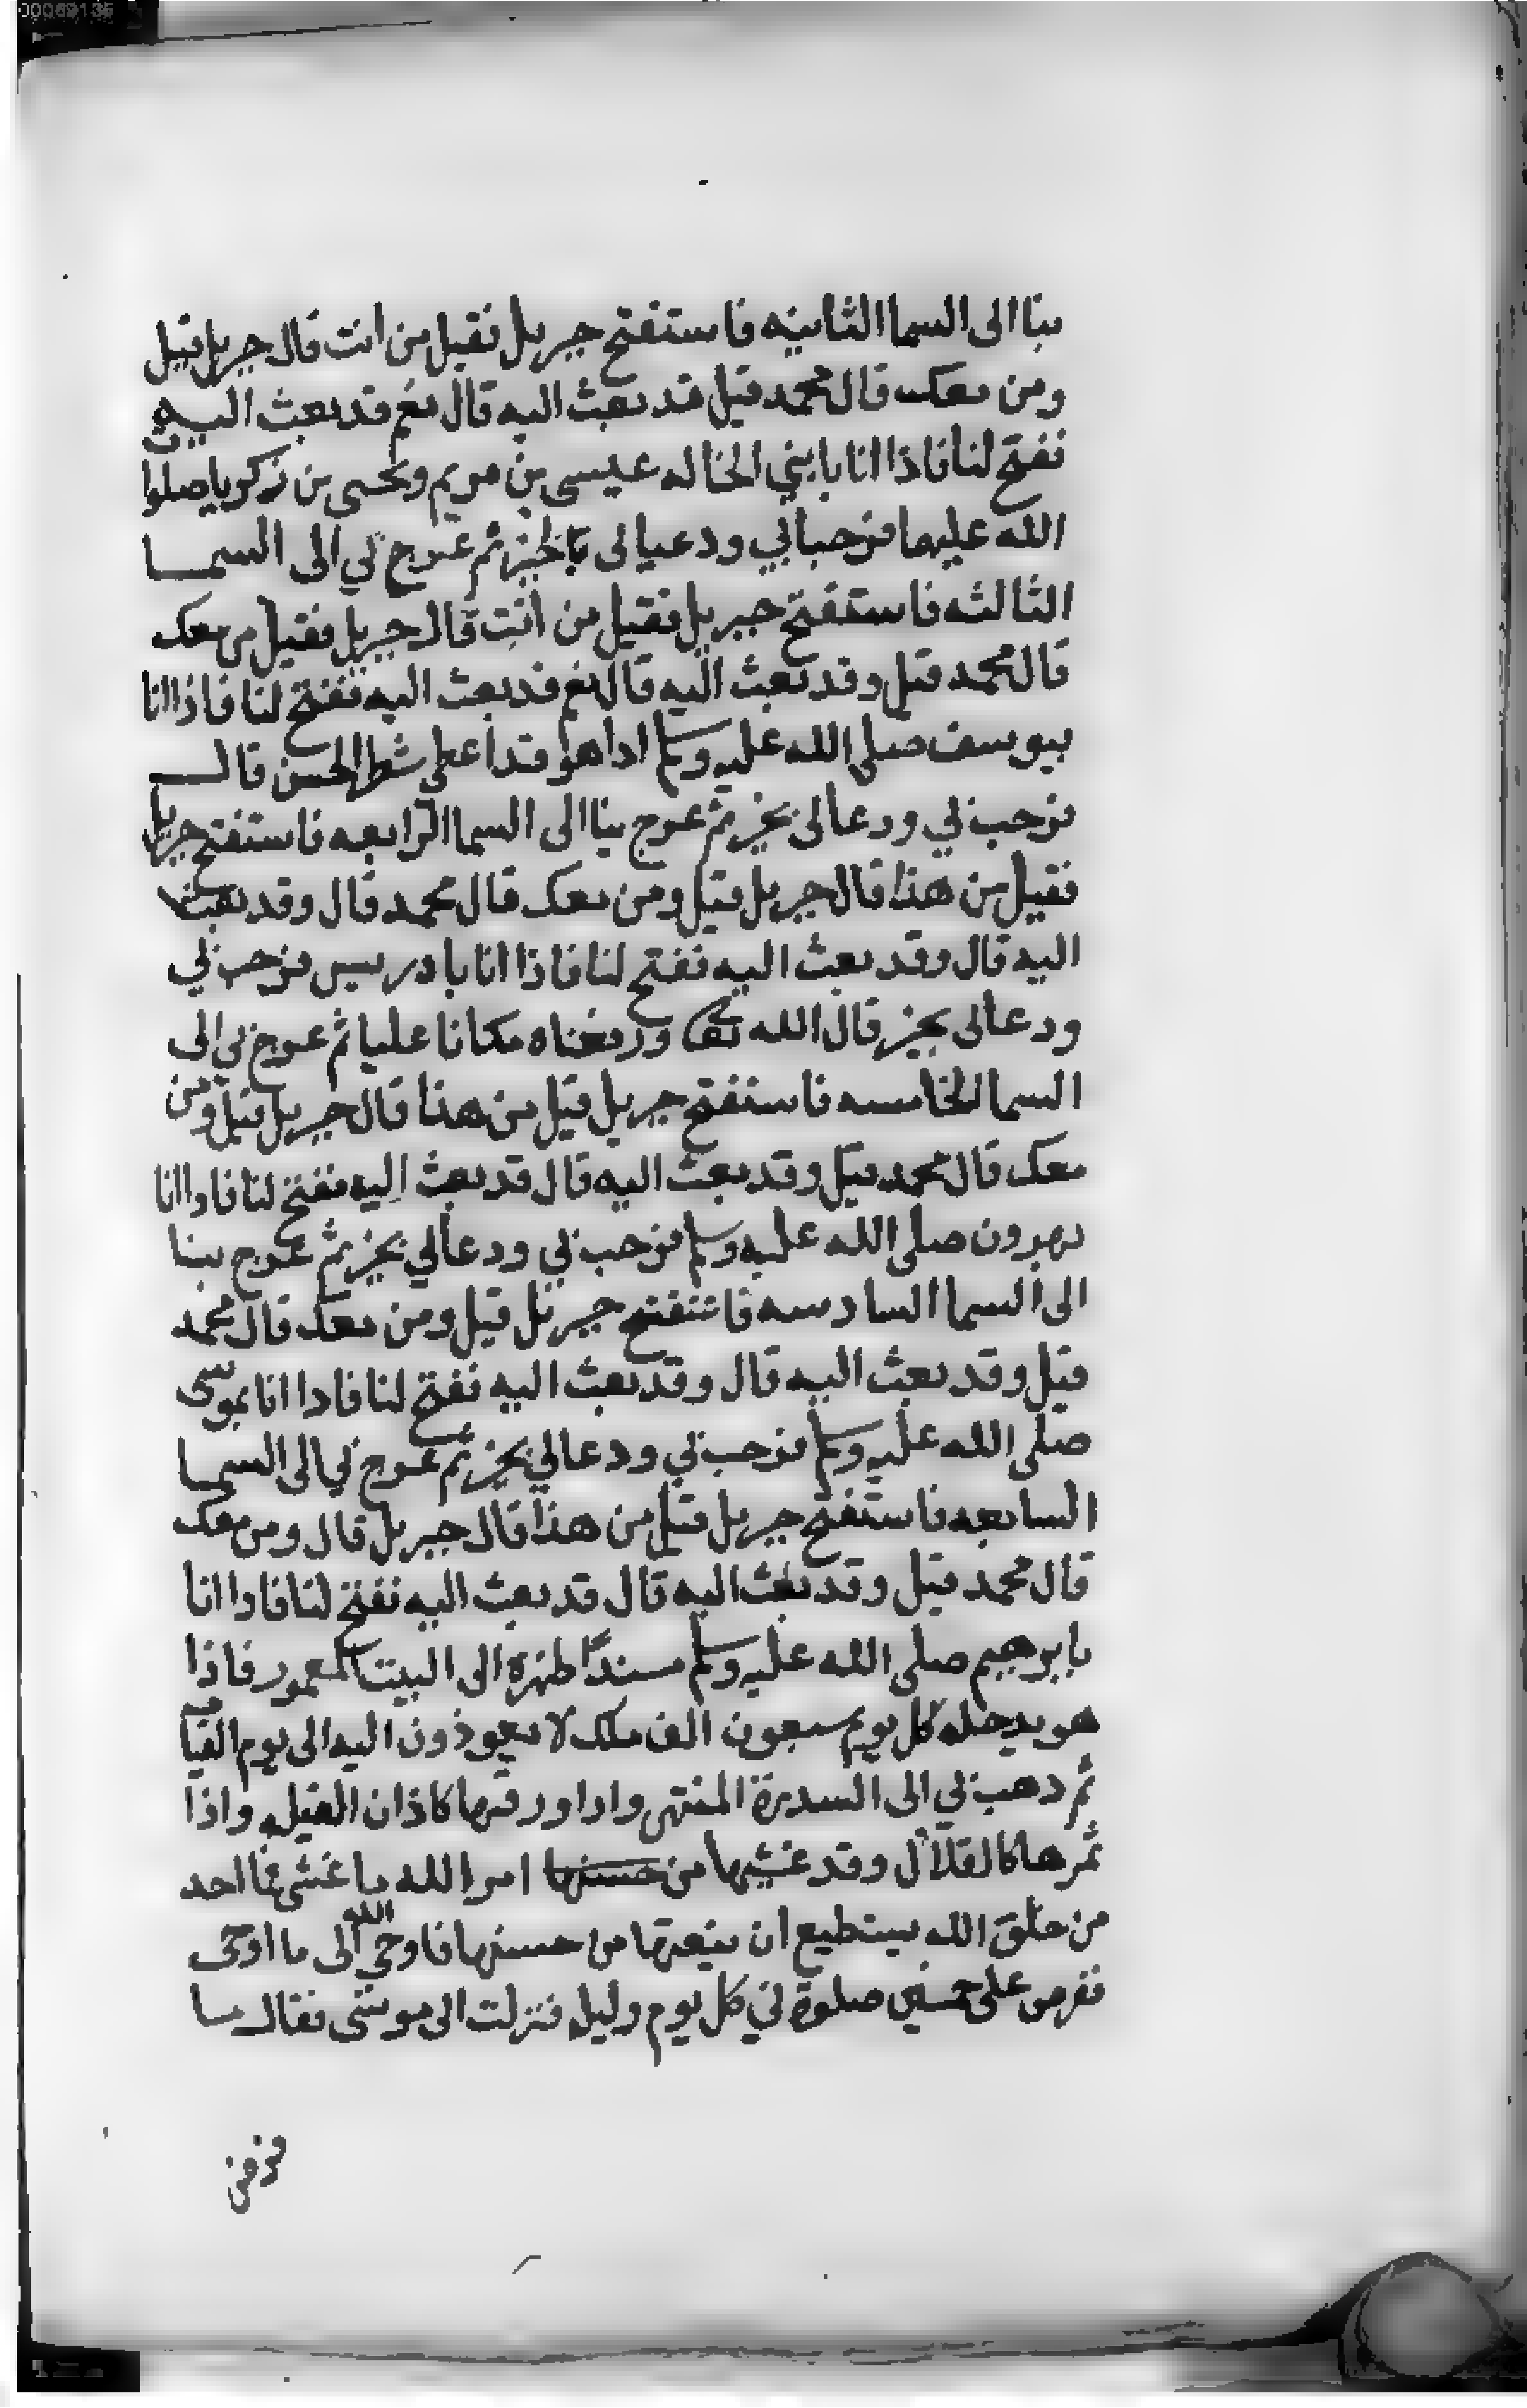 00069135
بنا الى السما الثانيه فاستفتح جبريل فقيل من انت قال جبريل قيل
ومن معك قال محمد قيل قد بعث اليه قال نعم قد بعث اليه
ففتح لنا فاذا انا بابني الخاله عيسى بن مريم ويحيى بن زكريا صلوا
الله عليهما فرحبا بي ودعيا لى بالخير ثم عرج بي الى السمـــا
الثالثه فاستفتح جبريل فقيل من انت قال جبريل فقيل من معك
قال محمد قيل وقد بعث اليه قال نعم قد بعث اليه ففتح لنا فاذا انا
بيوسف صلى الله عليه وسلم اذا هو قد اعطى شطر الحسن قال
فرحب بي ودعا لى بخير ثم عرج بنا الى السما الرابعه فاستفتح جبريل
فقيل من هذا قال جبريل قيل ومن معك قال محمد قال وقد بعث
اليه قال وقد بعث اليه ففتح لنا فاذا انا بادريس فرحب بي
ودعا لى بخير قال الله تعالى ورفعناه مكانا عليا ثم عرج بي الى
السما الخامسه فاستفتح جبريل قيل من هذا قال جبريل قيل ومن
معك قال محمد قيل وقد بعث اليه قال قد بعث اليه ففتح لنا فاذا انا
بهرون صلى الله عليه وسلم فرحب بي ودعا لي بخير ثم عرج بنا
الى السما السادسه فاستفتح جبريل قيل ومن معك قال محمد
قيل وقد بعث اليه قال وقد بعث اليه ففتح لنا فادا انا بموسى
صلى الله عليه وسلم فرحب بي ودعا لي بخير ثم عرج بي الى السمـا
السابعه فاستفتح جبريل قيل من هذا قال جبريل قال ومن معك
قال محمد قيل وقد بعث اليه قال قد بعث اليه ففتح لنا فادا انا
بابرهيم صلى الله عليه وسلم مسندًا ظهره الى البيت المعمور فاذا
هو يدخله كل يوم سبعون الف ملك لا يعودون اليه الى يوم القيامة
ثم دهب بي الى السدرة المنتهى واذا ورقها كاذان الفيله واذا
ثمرها كالقلال وقد غشيها من حسنها امر الله ما غشى فما احد
من خلق الله يستطيع ان ينعتها من حسنها فاوحى الله الى ما اوحى
ففرض على خمسين صلوة في كل يوم وليله فنزلت الى موسى فقال ما
فرض